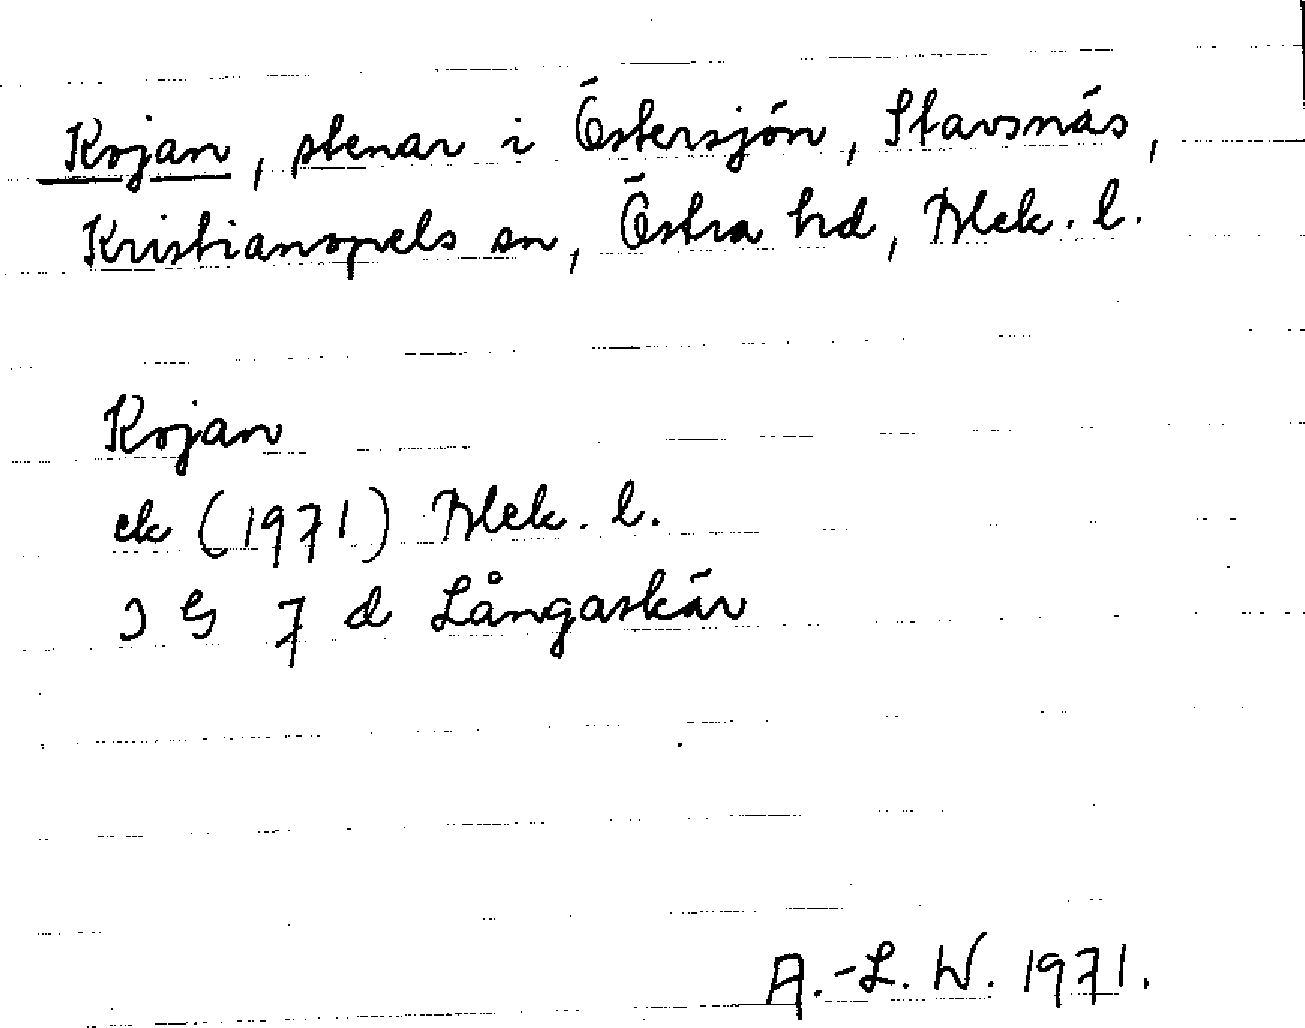 Kojan, stenar i Östersjön, Stavsnäs,
Kristianopels sn, Östra hd, Blek. l.
Kojan
ek (1971) Blek. l.
3 G 7 d Långaskär
A.-L. W. 1971.